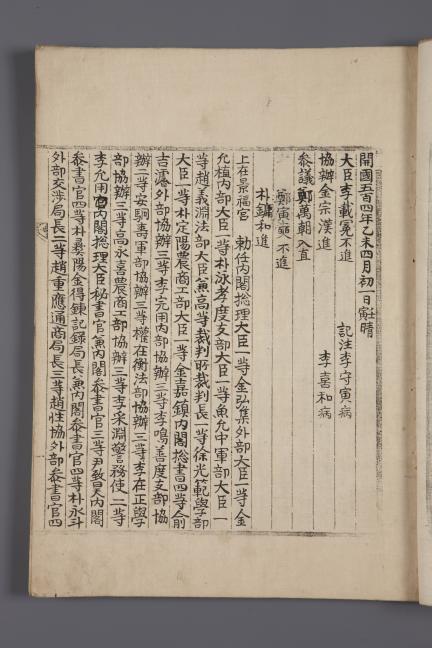 開國五百四年乙未四月初一日壬寅晴
大臣李載冕不進 記注李守寅病
協辦金宗漢進 李喜和病
參議鄭萬朝入直
鄭寅奭不進
朴鏞和進
上在景福宮 勅任內閣総理大臣一等金弘集外部大臣一等金
允植內部大臣一等朴泳孝度支部大臣一等魚允中軍部大臣一
等趙義淵法部大臣兼高等裁判所裁判長一等徐光範學部
大臣一等朴定陽農商工部大臣一等金嘉鎮內閣総書四等兪
吉濬外部協辦三等李完用內部協辦三等李鳴善度支部協
辦二等安駉壽軍部協辦三等權在衡法部協辦三等李在正學
部協辦三等高永喜農商工部協辦三等李采淵警務使二等
李允用內閣総理大臣秘書官兼內閣參書官三等尹致昊內閣
參書官四等朴彝陽金得鍊記録局長兼內閣參書官四等朴永斗
外部交渉局長二等趙重應通商局長三等趙性協外部參書官四